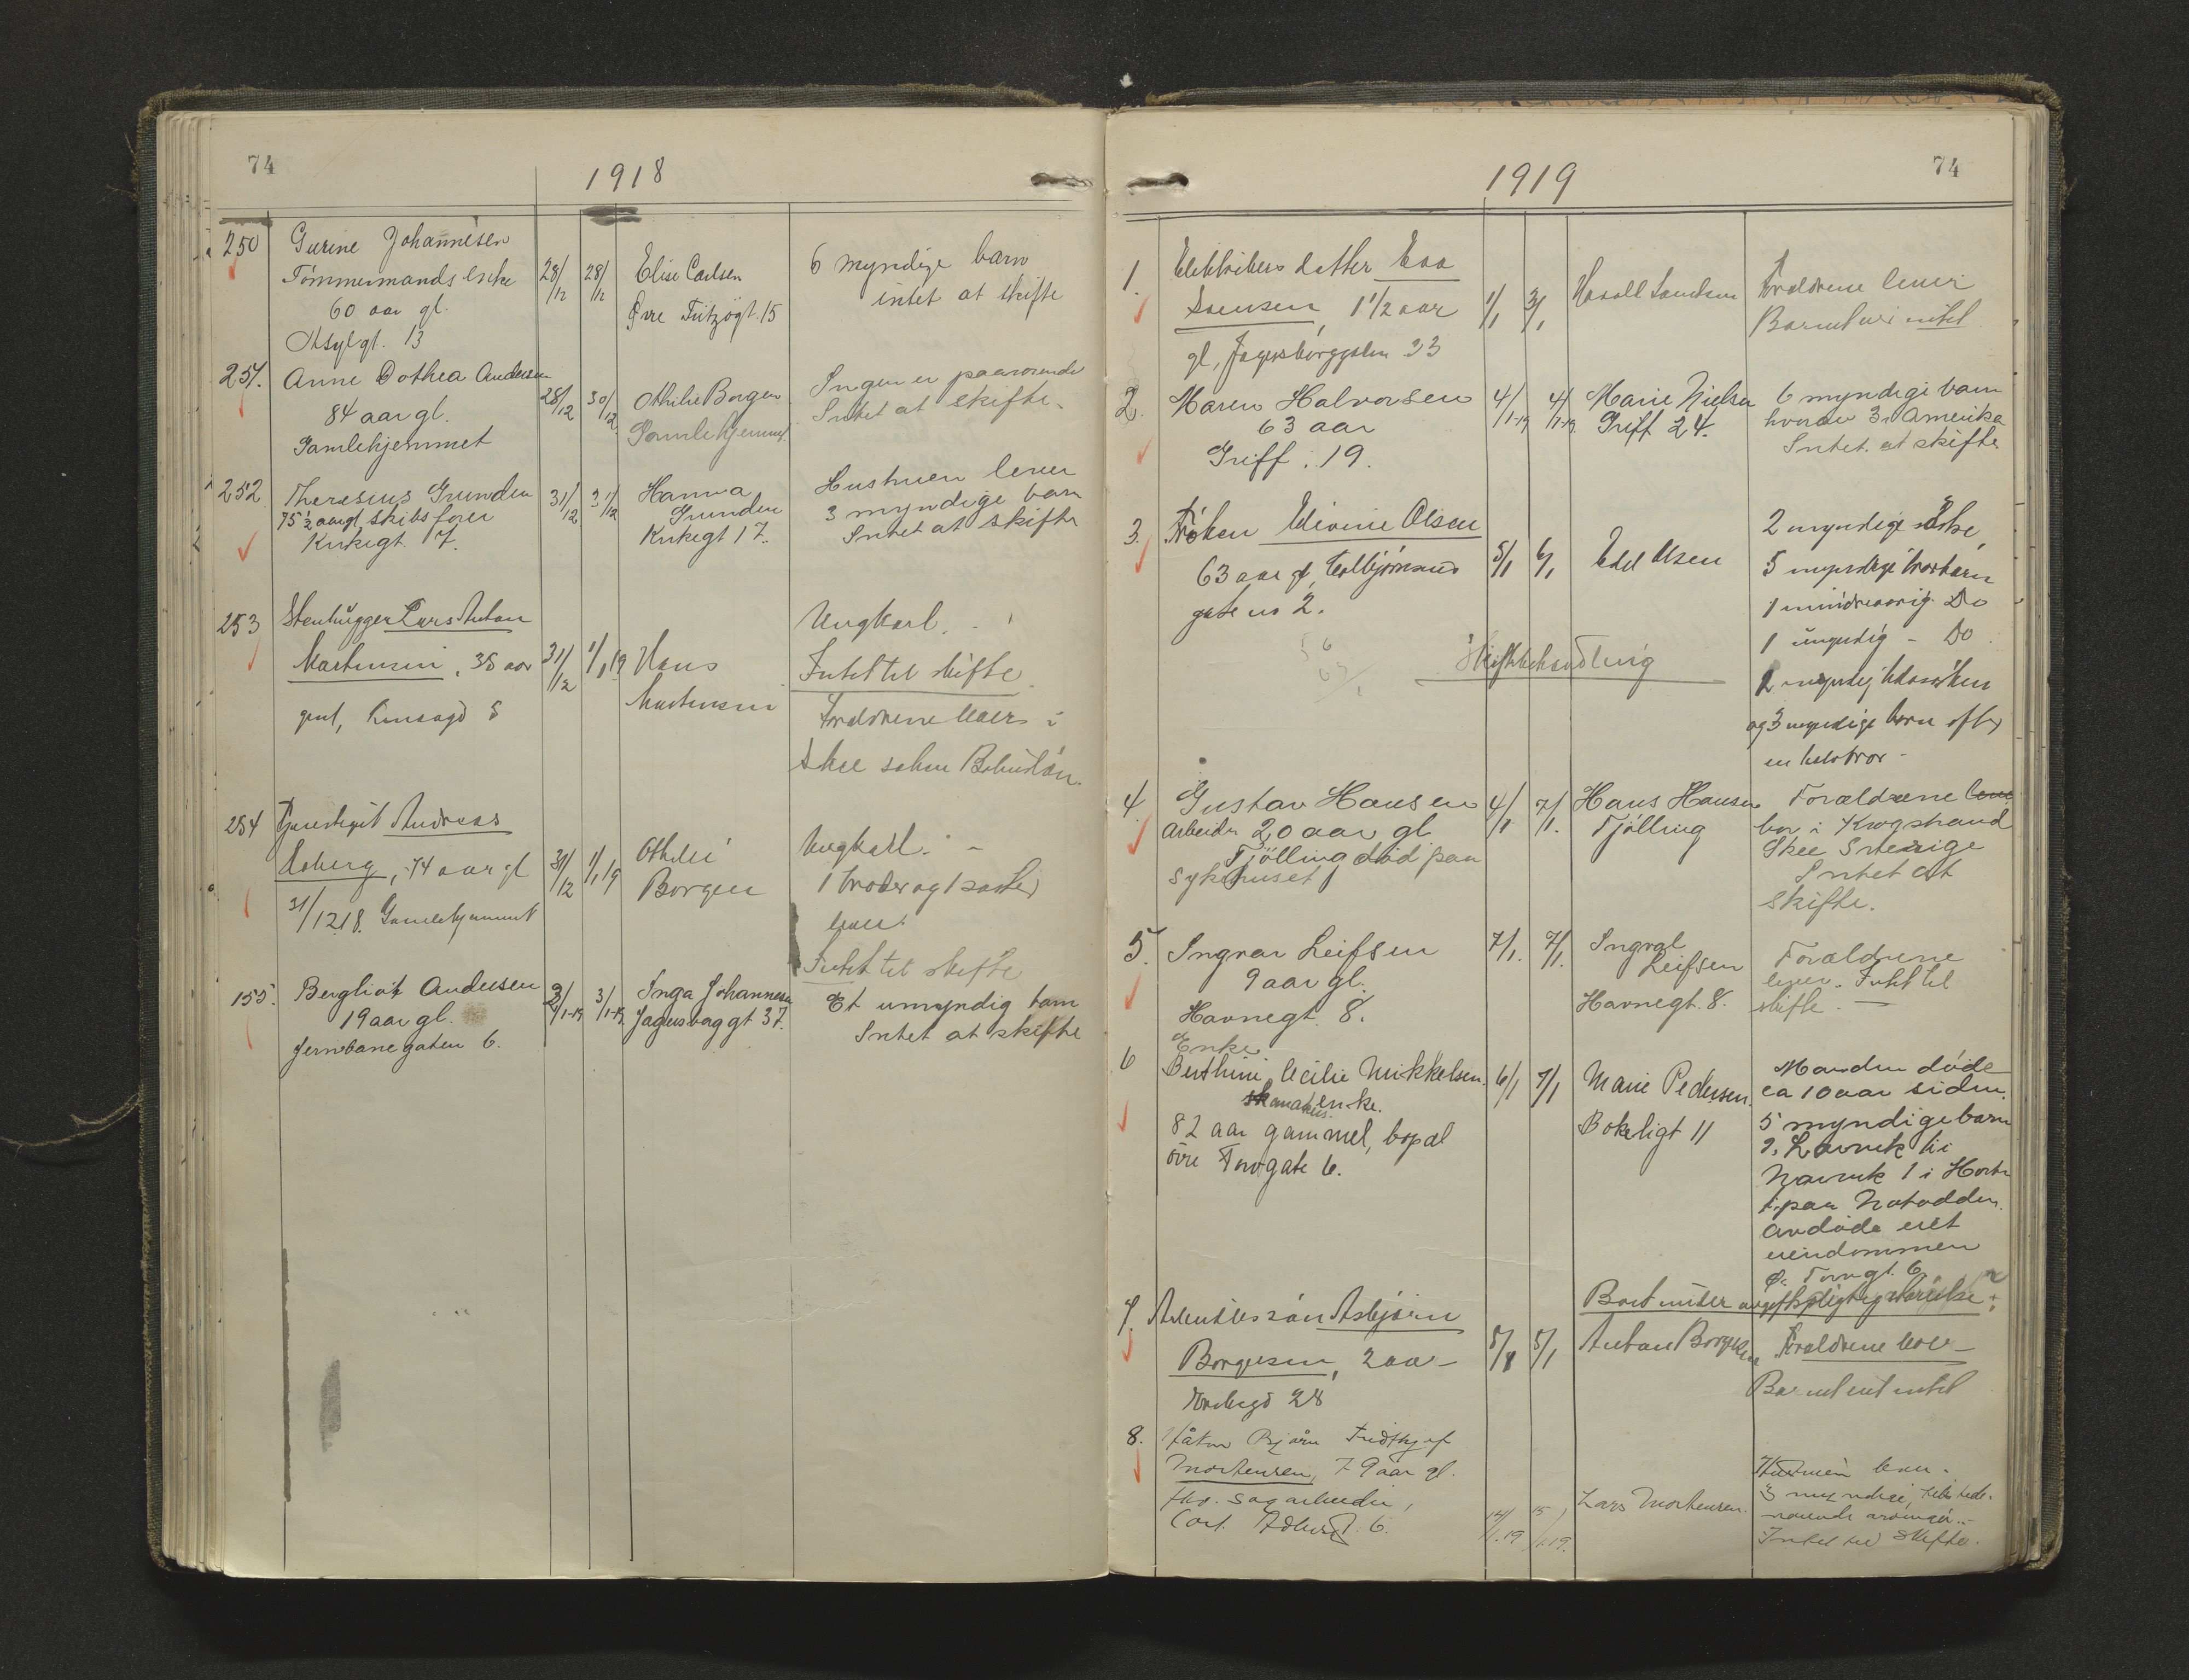 74
1918
250
Gurine Johannesen
Tömmermands enke
60 aar gl.
Asylgt. 13
28/12
28/12
Elise Carlsen
Øvre Fritzögt. 15
6 myndige barn
intet at skifte
251.
Anne Dothea Andersen
84 aar gl.
Gamlehjemmet
28/12
30/12
Othilie Borgen
Gamlehjemmet
Ingen er paarörende
Intet at skifte.
252
Theresius Grunden
75 1/2 aargl skibsförer
Kirkegt 17.
31/12
31/12
Hanna
Grunden
Kirkegt 17.
Hustruen lever
3 myndige barn
Intet at skifte
253
Stenhugger Lars Anton
Martinsen, 38 aar
gml,
31/12
1/1 19
Hans
Martinsen
Ungkarl.
Intet til skifte
Forældrene lever i
Skee sokn Bohuslän.
254
Andreas
Aaberg, 74 aar gl
31/12 18. Gamlehjemmet
31/12
1/1 19
Othilie
Borgen
Ungkarl. -
1 broder og 1 søster
lever.
Intet til skifte
155.
Bergliot Andersen
19 aar gl.
Jernbanegaten 6.
2/1-19
3/1-19.
Inga Johannesen
Jegersborggt 37.
Et umyndig barn
Intet at skifte
1919
74
1.
datter Eva
Svensen, 1 1/2 aar
gl, Jegersborggaten 33
1/1
3/1
Harald Svendsen
Forældrene lever
Barnet eier intet
2.
Maren Halvorsen
63 aar
Greff. 19.
4/1-19
4/1-19.
Marie Nielsen
Greff 24.
6 myndige barn
hvorav 3 i Amerika
Intet at skifte
3.
Frøken Olsen
63 aar gl, Colbjörnsens
gate no 2.
5/1
6/1
Edel Olsen
2 myndige søstre,
5 myndige brorbarn
1 mindreaarig Do
1 umyndig - Do.
og 3 myndige barn efter
en halvbror -
Skiftebehandling
4.
Gustav Hansen
Arbeider 20 aar gl
Tjölling död paa
Sykehuset
4/1
7/1.
Hans Hansen
Tjölling
Forældrene lever
bor i Krogstrand
Skee Sverige
Intet at
skifte.
5.
Ingvar Leifsen
9 aar gl.
Havnegt. 8.
7/1.
7/1.
Ingval
Leifsen
Havnegt. 8.
Forældrene
lever. Intet til
skifte. -
6
Enke
Berthine Cecilie Mikkelsen.
enke.
82 aar gammel, bopæl
övre Torvgate 6.
6/1
7/1
Marie Pedersen.
Bökeligt 11
Manden döde
ca 10 aar siden.
5 myndige barn
2. Larvik 1 i
Narvik 1 i Horten
1 paa Notodden.
Avdöde eiet
eiendommen
Ø. Torvgt. 6
Boet under avgiftspligtig størrelse.
7.
søn Asbjørn
Borgersen, 2 aar -
Torstvgd 28
5/1
8/1
Anton Borgersen
Forældrene lever -
Barnet eiet intet
8.
Håkon Bjørn Fridthjof
Mortensen, 79 aar gl.
fhv. sagarbeider,
Carl Adlersgt. 6.
14/1.19
15/1.19.
Lars Mortensen.
Hustruen lever.
3 myndige, tilstede-
værende arvinger.
Intet til skifte.